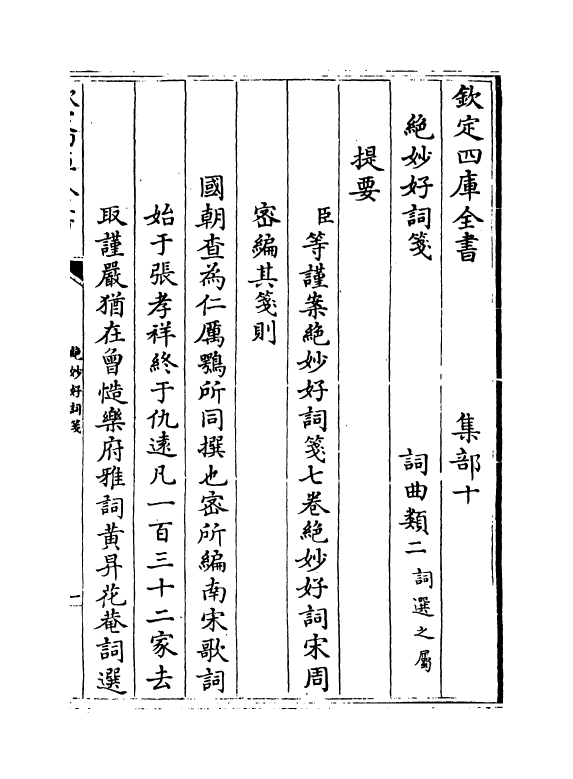 欽定四庫全書　集部十
絶妙好詞箋　詞曲類二 詞選之屬
提要
臣等謹案絶妙好詞箋七卷絶妙好詞宋周
密編其箋則
國朝查為仁厲鶚所同撰也密所編南宋歌詞
始于張孝祥終于仇逺凡一百三十二家去
取謹嚴猶在曾慥樂府雅詞黄昇花菴詞選
絶妙好詞箋
一